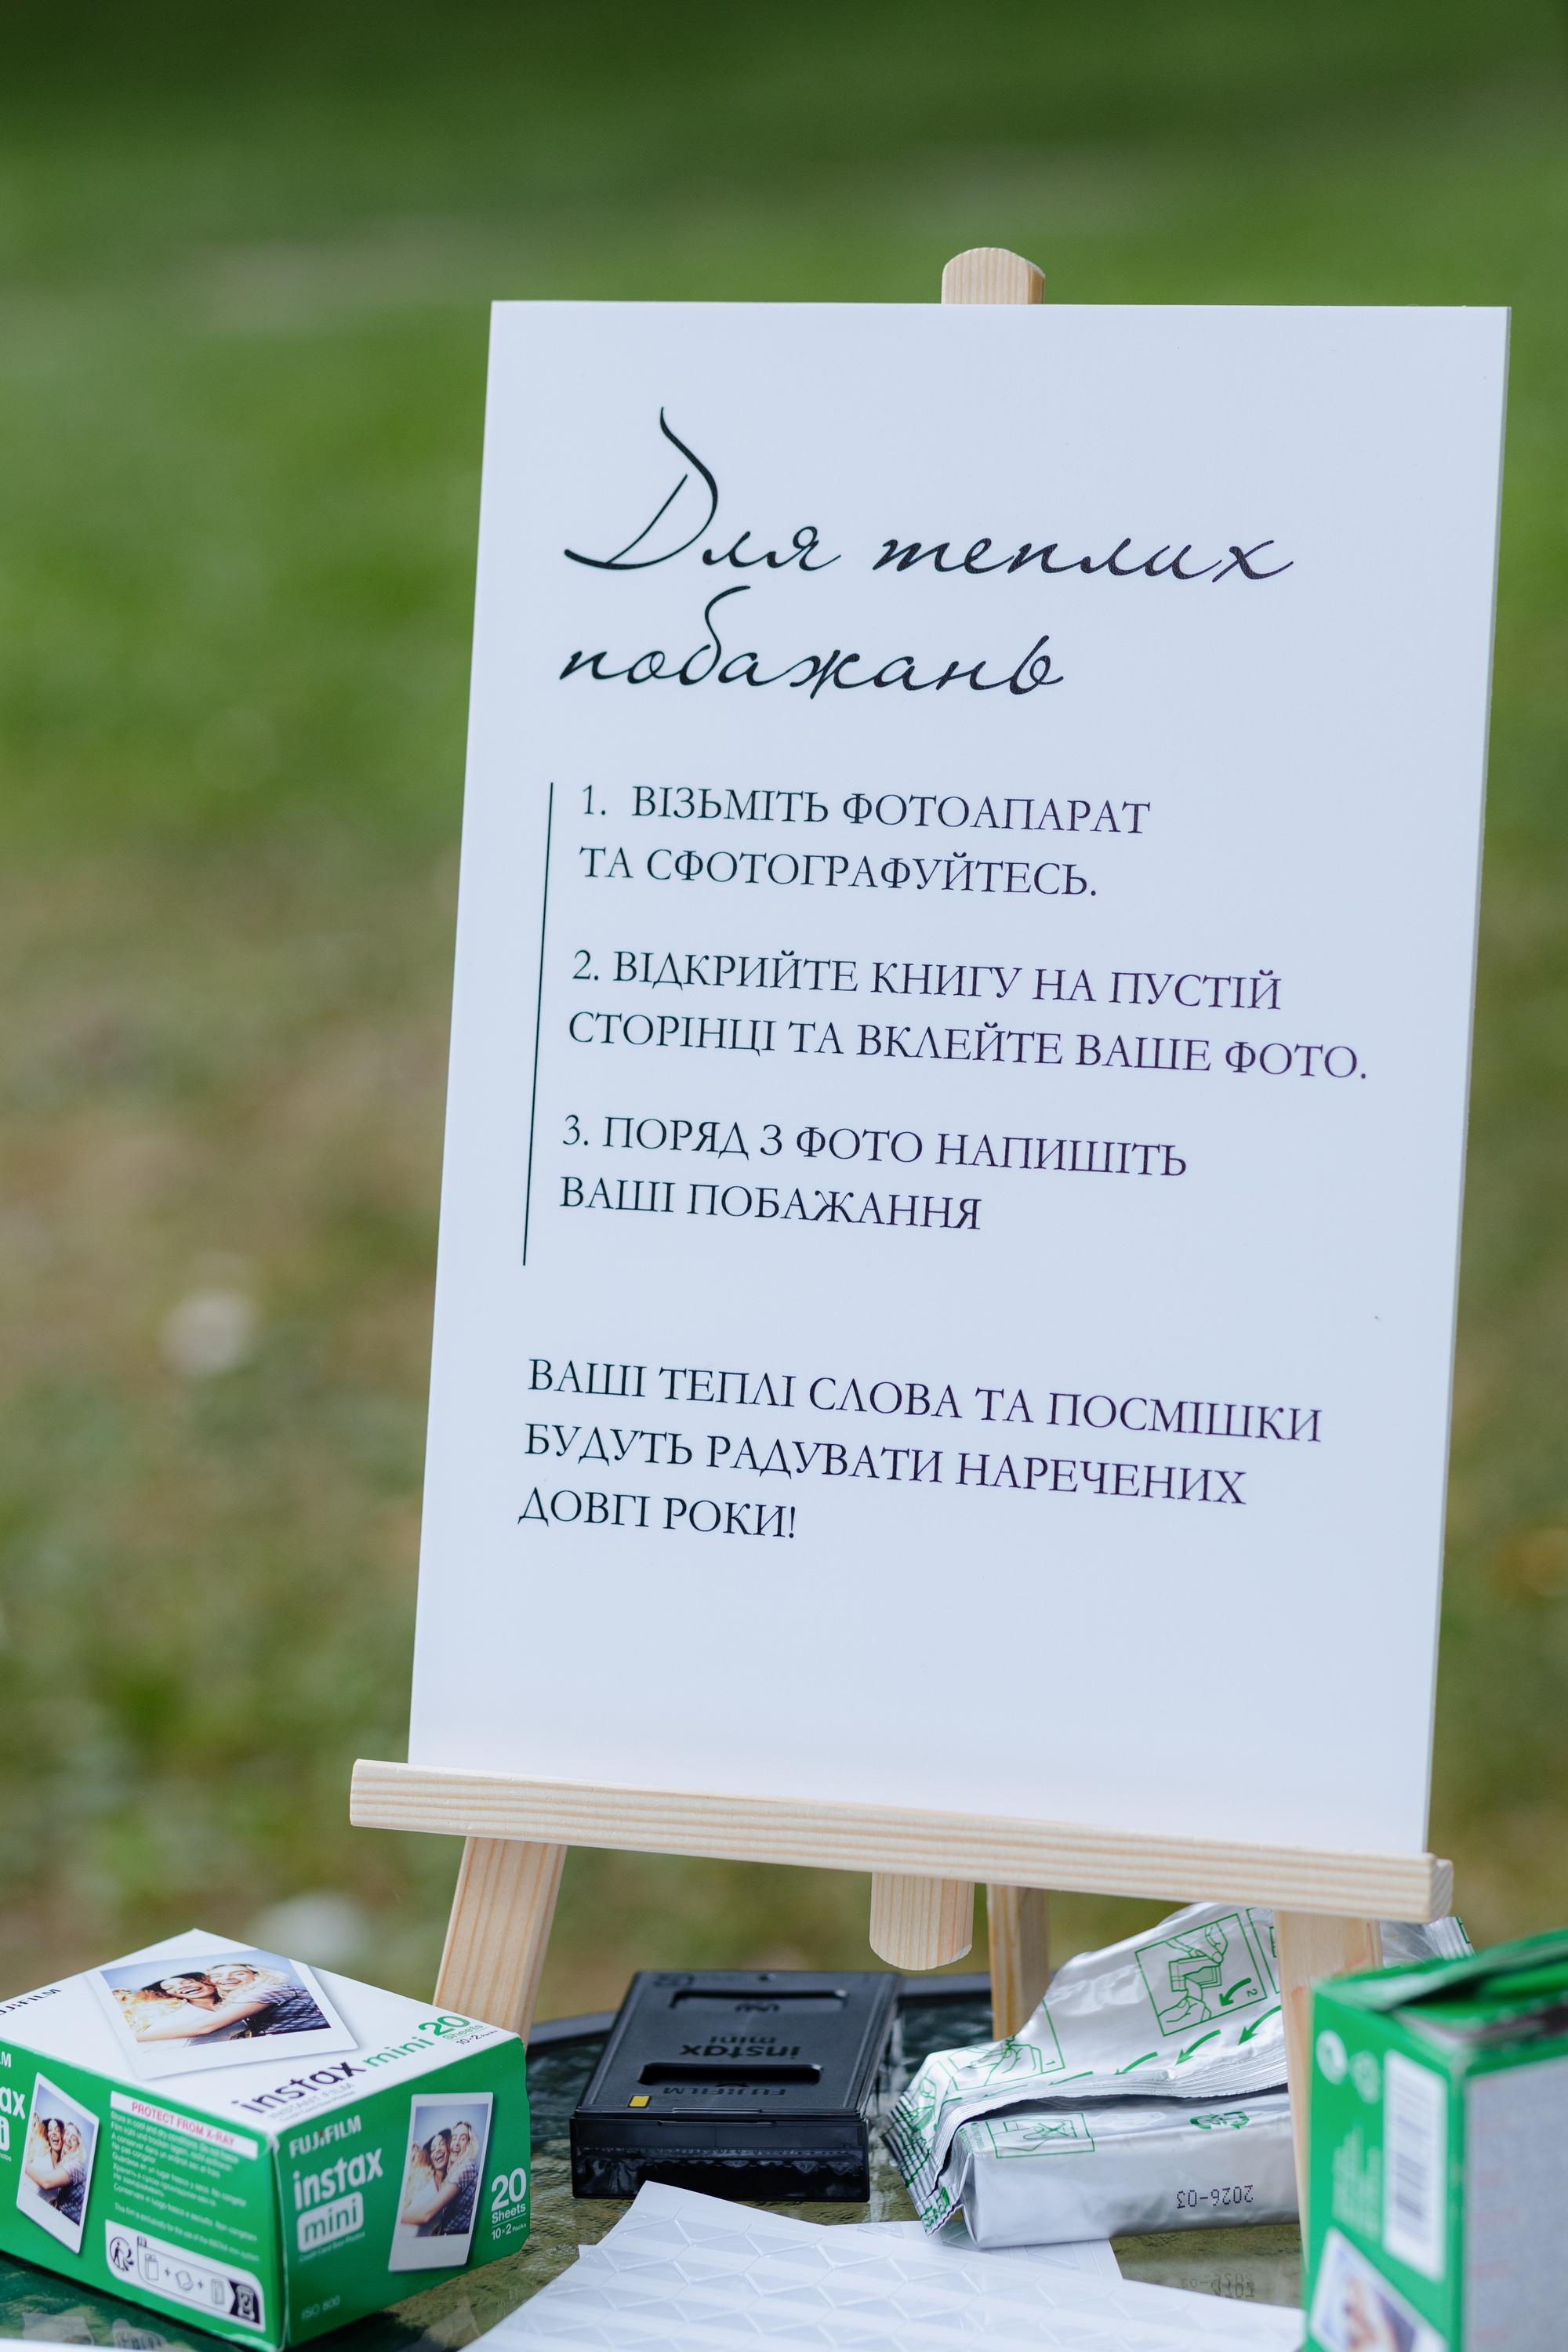 Для теплих
побажань
1. ВІЗЬМІТЬ ФОТОАПАРАТ
ТА СФОТОГРАФУЙТЕСЬ.
2. ВІДКРИЙТЕ КНИГУ НА ПУСТІЙ
СТОРІНЦІ ТА ВКЛЕЙТЕ ВАШЕ ФОТО.
3. ПОРЯД З ФОТО НАПИШІТЬ
ВАШІ ПОБАЖАННЯ
ВАШІ ТЕПЛІ СЛОВА ТА ПОСМІШКИ
БУДУТЬ РАДУВАТИ НАРЕЧЕНИХ
ДОВГІ РОКИ!
instax mini 20
Sheets
10×2 Packs
PROTECT FROM X-RAY
FUJIFILM
instax
mini
20
Sheets
10×2 Packs
ISO 800
instax
mini
FUJIFILM
2026-03